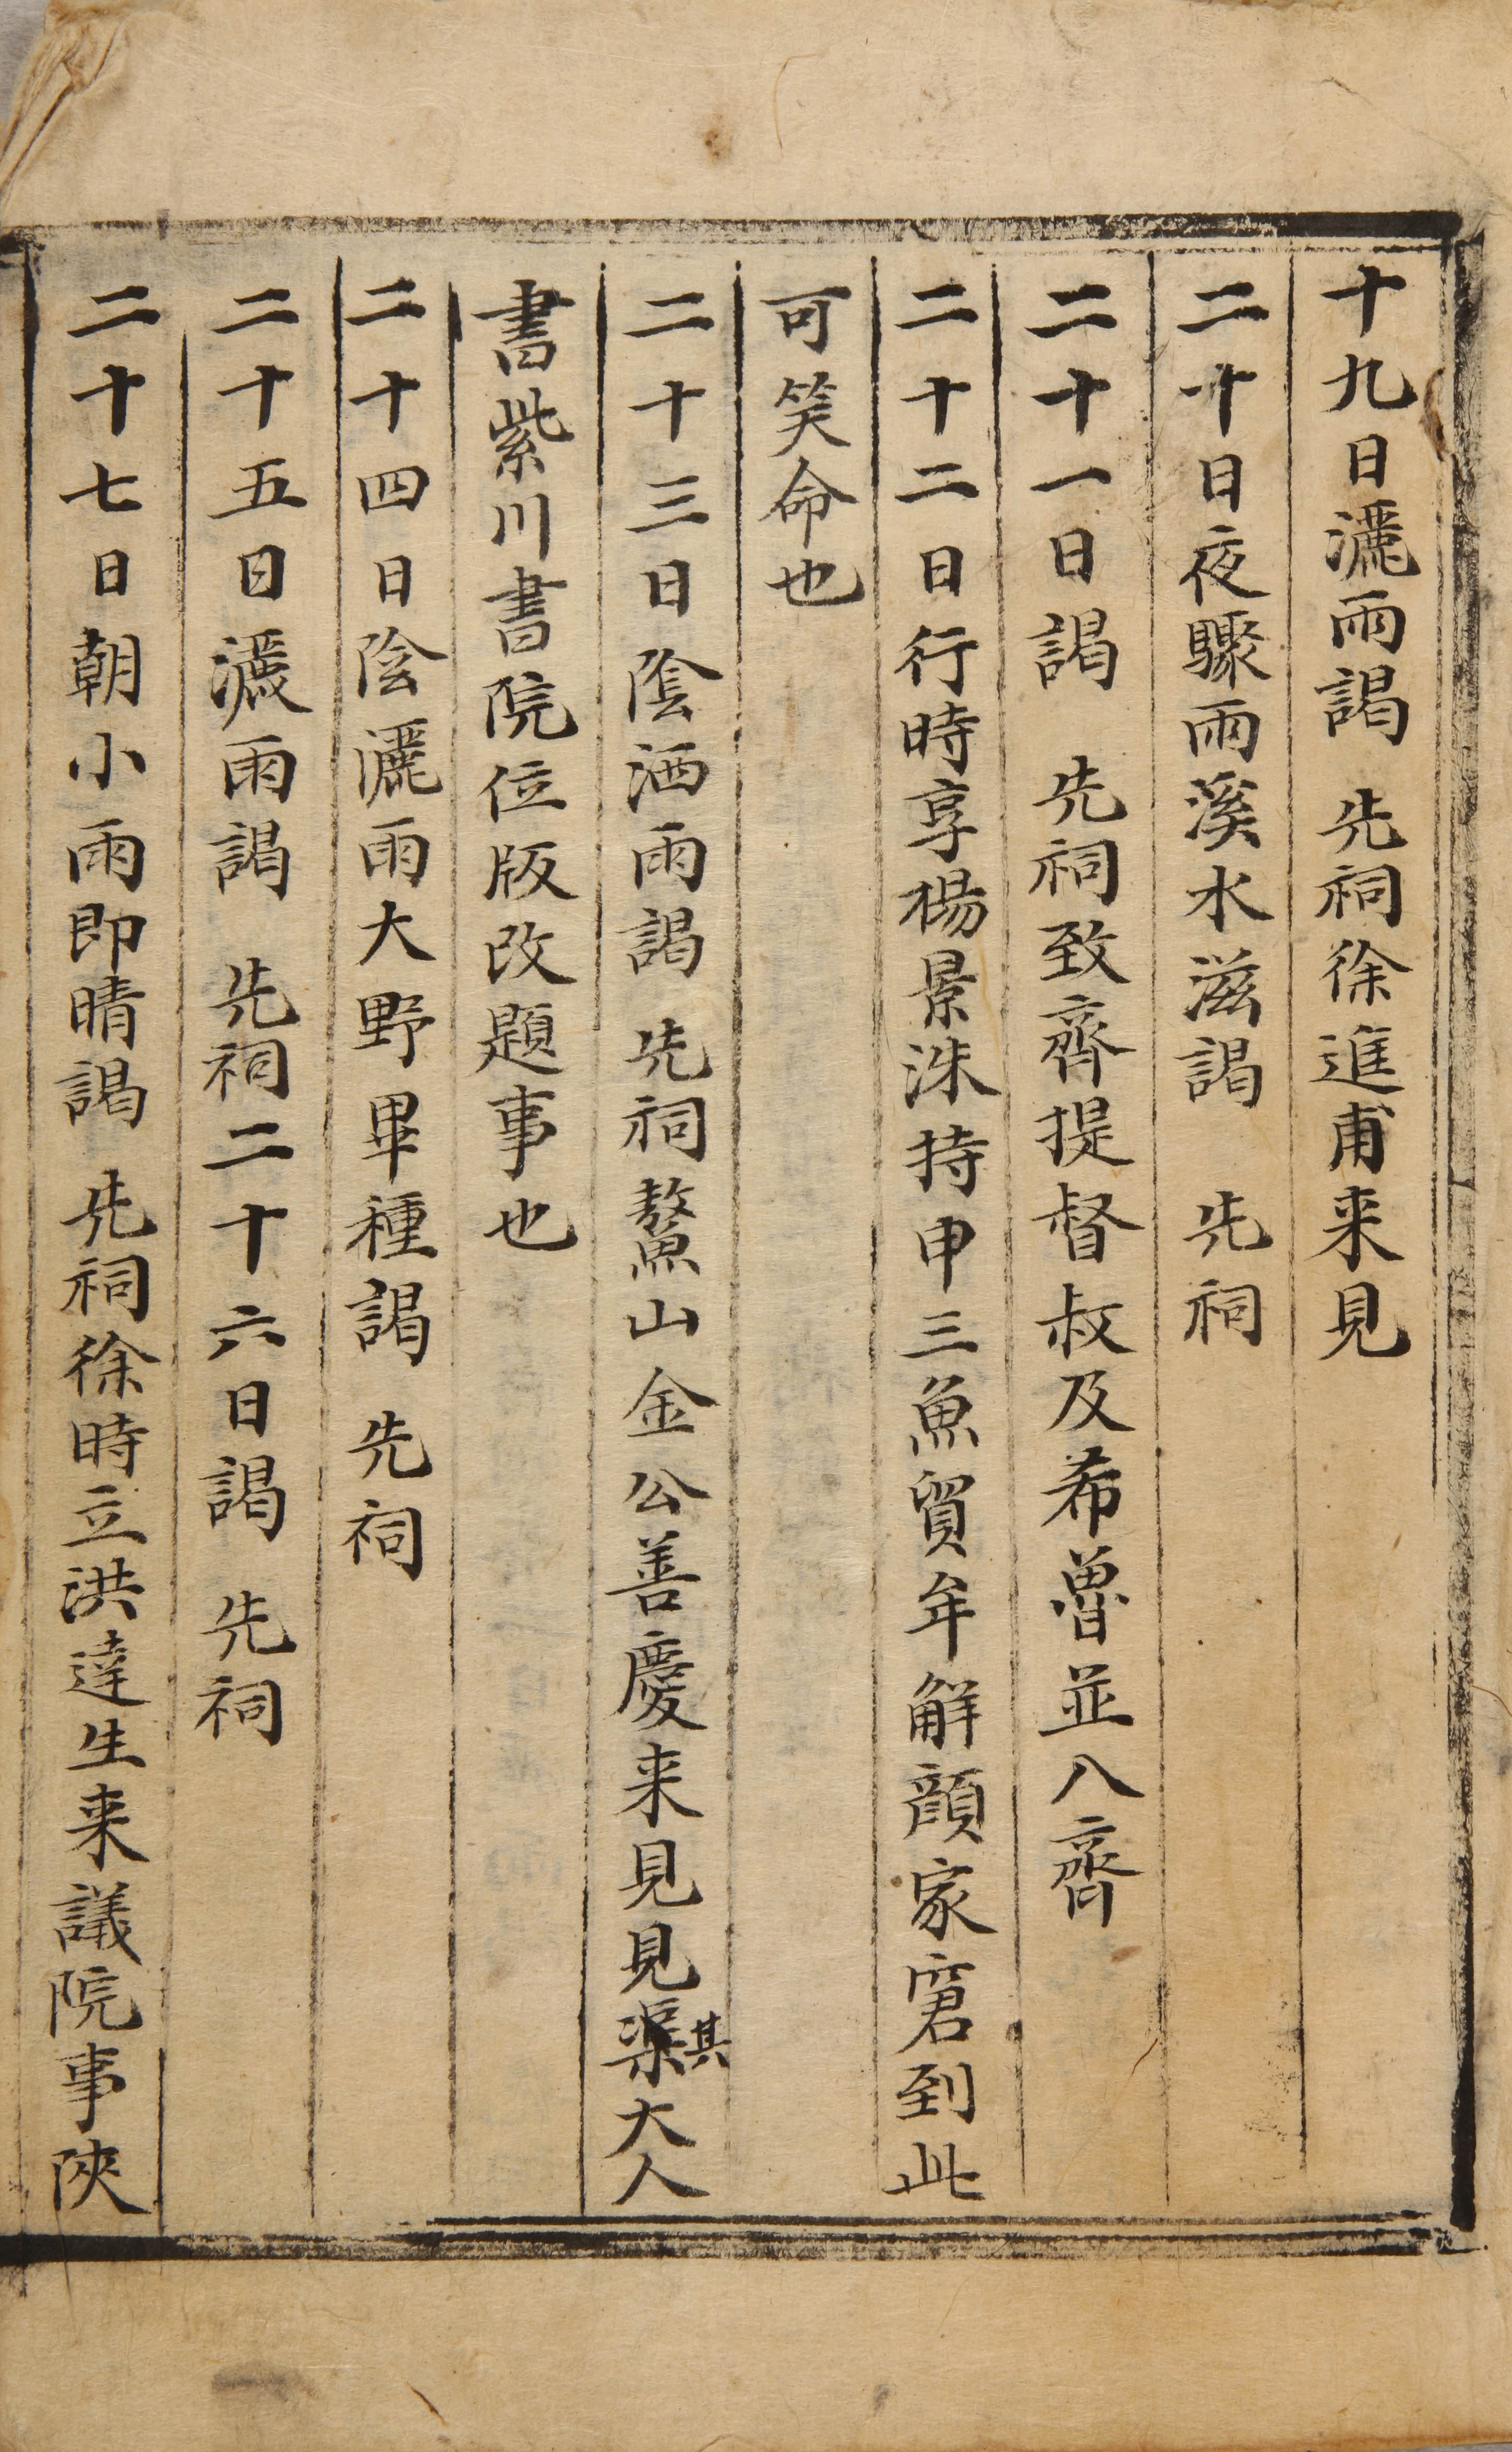 十九日灑雨謁 先祠徐進甫来見
二十日夜驟雨溪水滋謁 先祠
二十一日謁 先祠致齊提督叔及希魯並入齊
二十二日行時享楊景洙持申三魚貿牟解顔家窘到此
可笑命也
二十三日陰洒雨謁 先祠鰲山金公善慶来見見渠其大人
書紫川書院位版改題事也
二十四日陰灑雨大野畢種謁 先祠
二十五日灑雨謁 先祠二十六日謁 先祠
二十七日朝小雨即晴謁 先祠徐時立洪達生来議院事陜